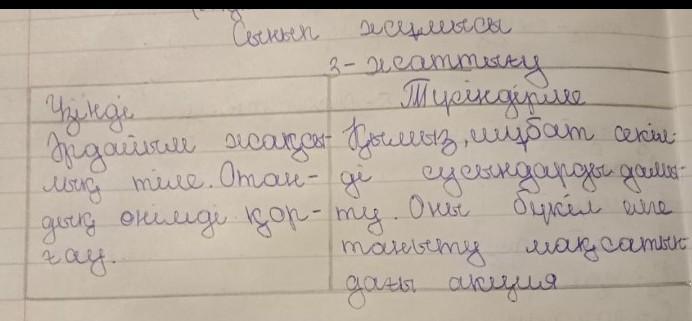 Сынып жұмысы
3-жаттығу
Үзінді
Түсіндірме
Әрдайым жақсы-
лық тіле. Отан-
дық өнімді қор-
ғау.
Қымыз, шұбат секіл-
ді сусындарды дамы-
ту. Оны бүкіл әлемге
таныту мақсатын-
дағы акция